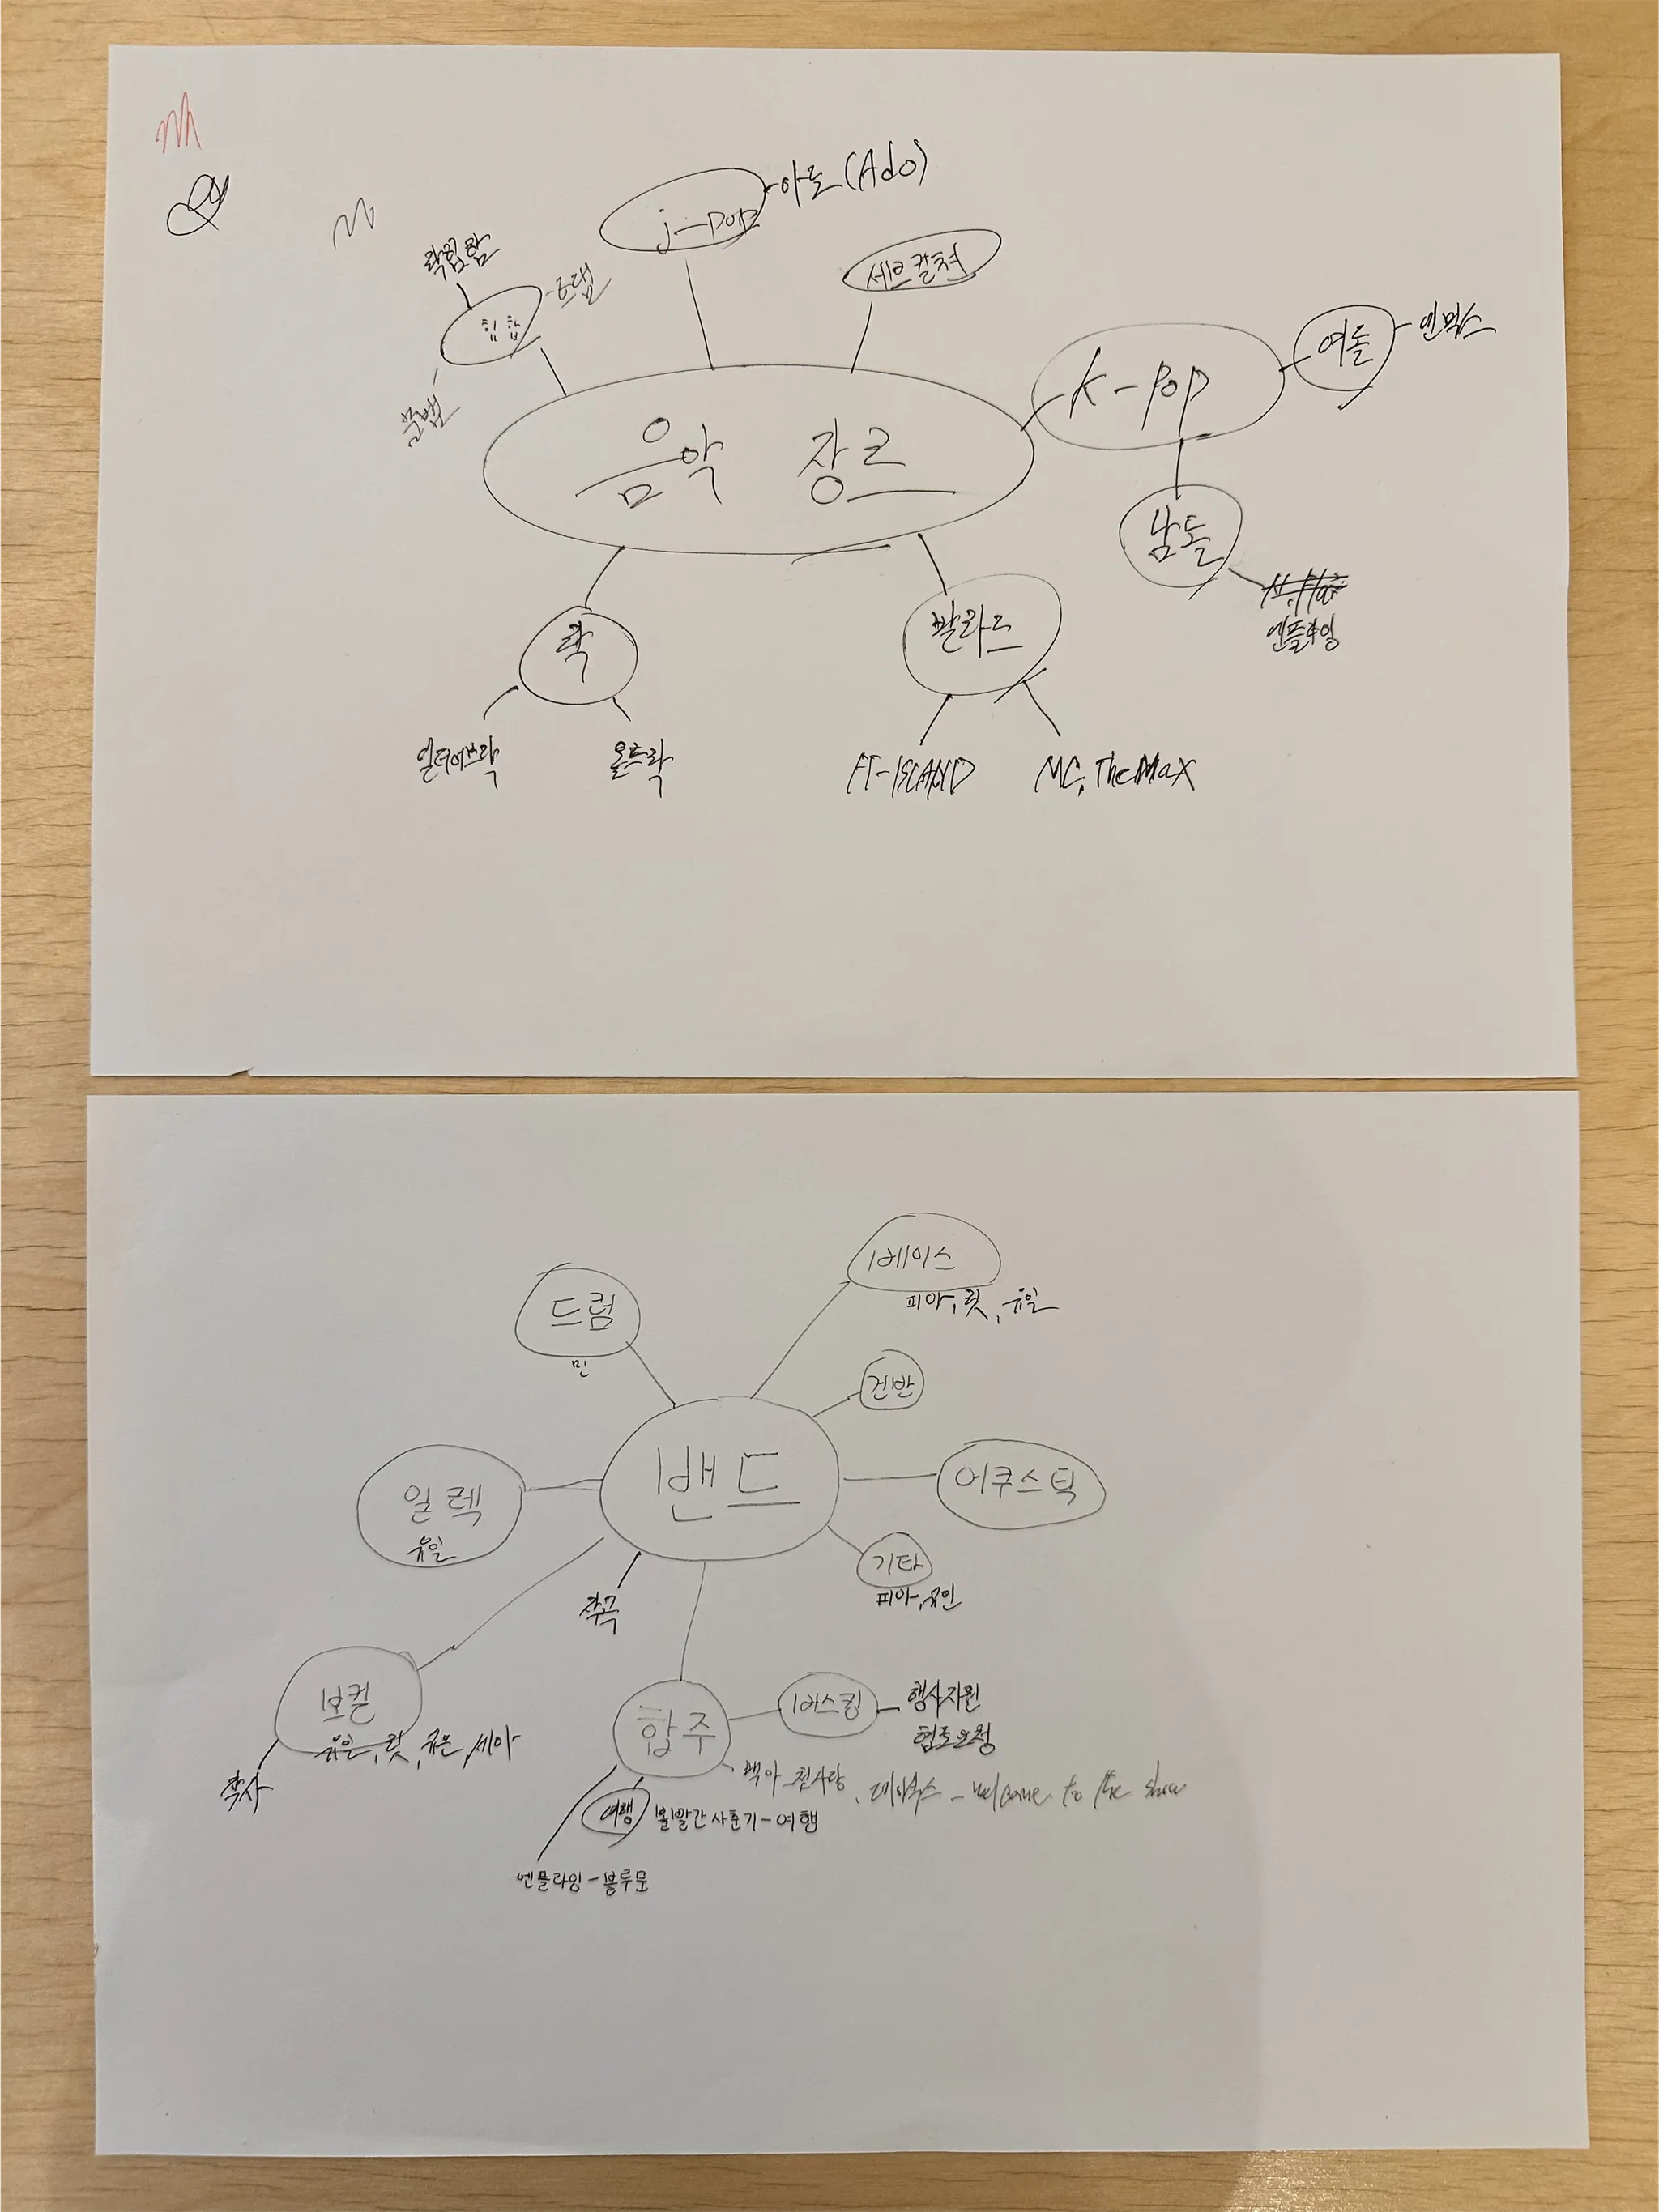 j-pop
아도 (Ado)
락힙합
힙합
세브컬쳐
K-pop
여돌
엔믹스
붐뱁
음악 장르
남돌
엔플라잉
락
발라드
얼터너티브락
올드락
FT-ISLAND
MC, The MaX
베이스
피아, 릿, 유일
드럼
민
건반
밴드
어쿠스틱
일렉
유일
기타
피아,
작곡
보컬
유일, 릿, 세아
작사
합주
버스킹
행사지원
협조요청
백아 - 첫사랑, 데이식스 - welcome to the show
여행
볼빨간사춘기 - 여행
엔플라잉 - 블루문